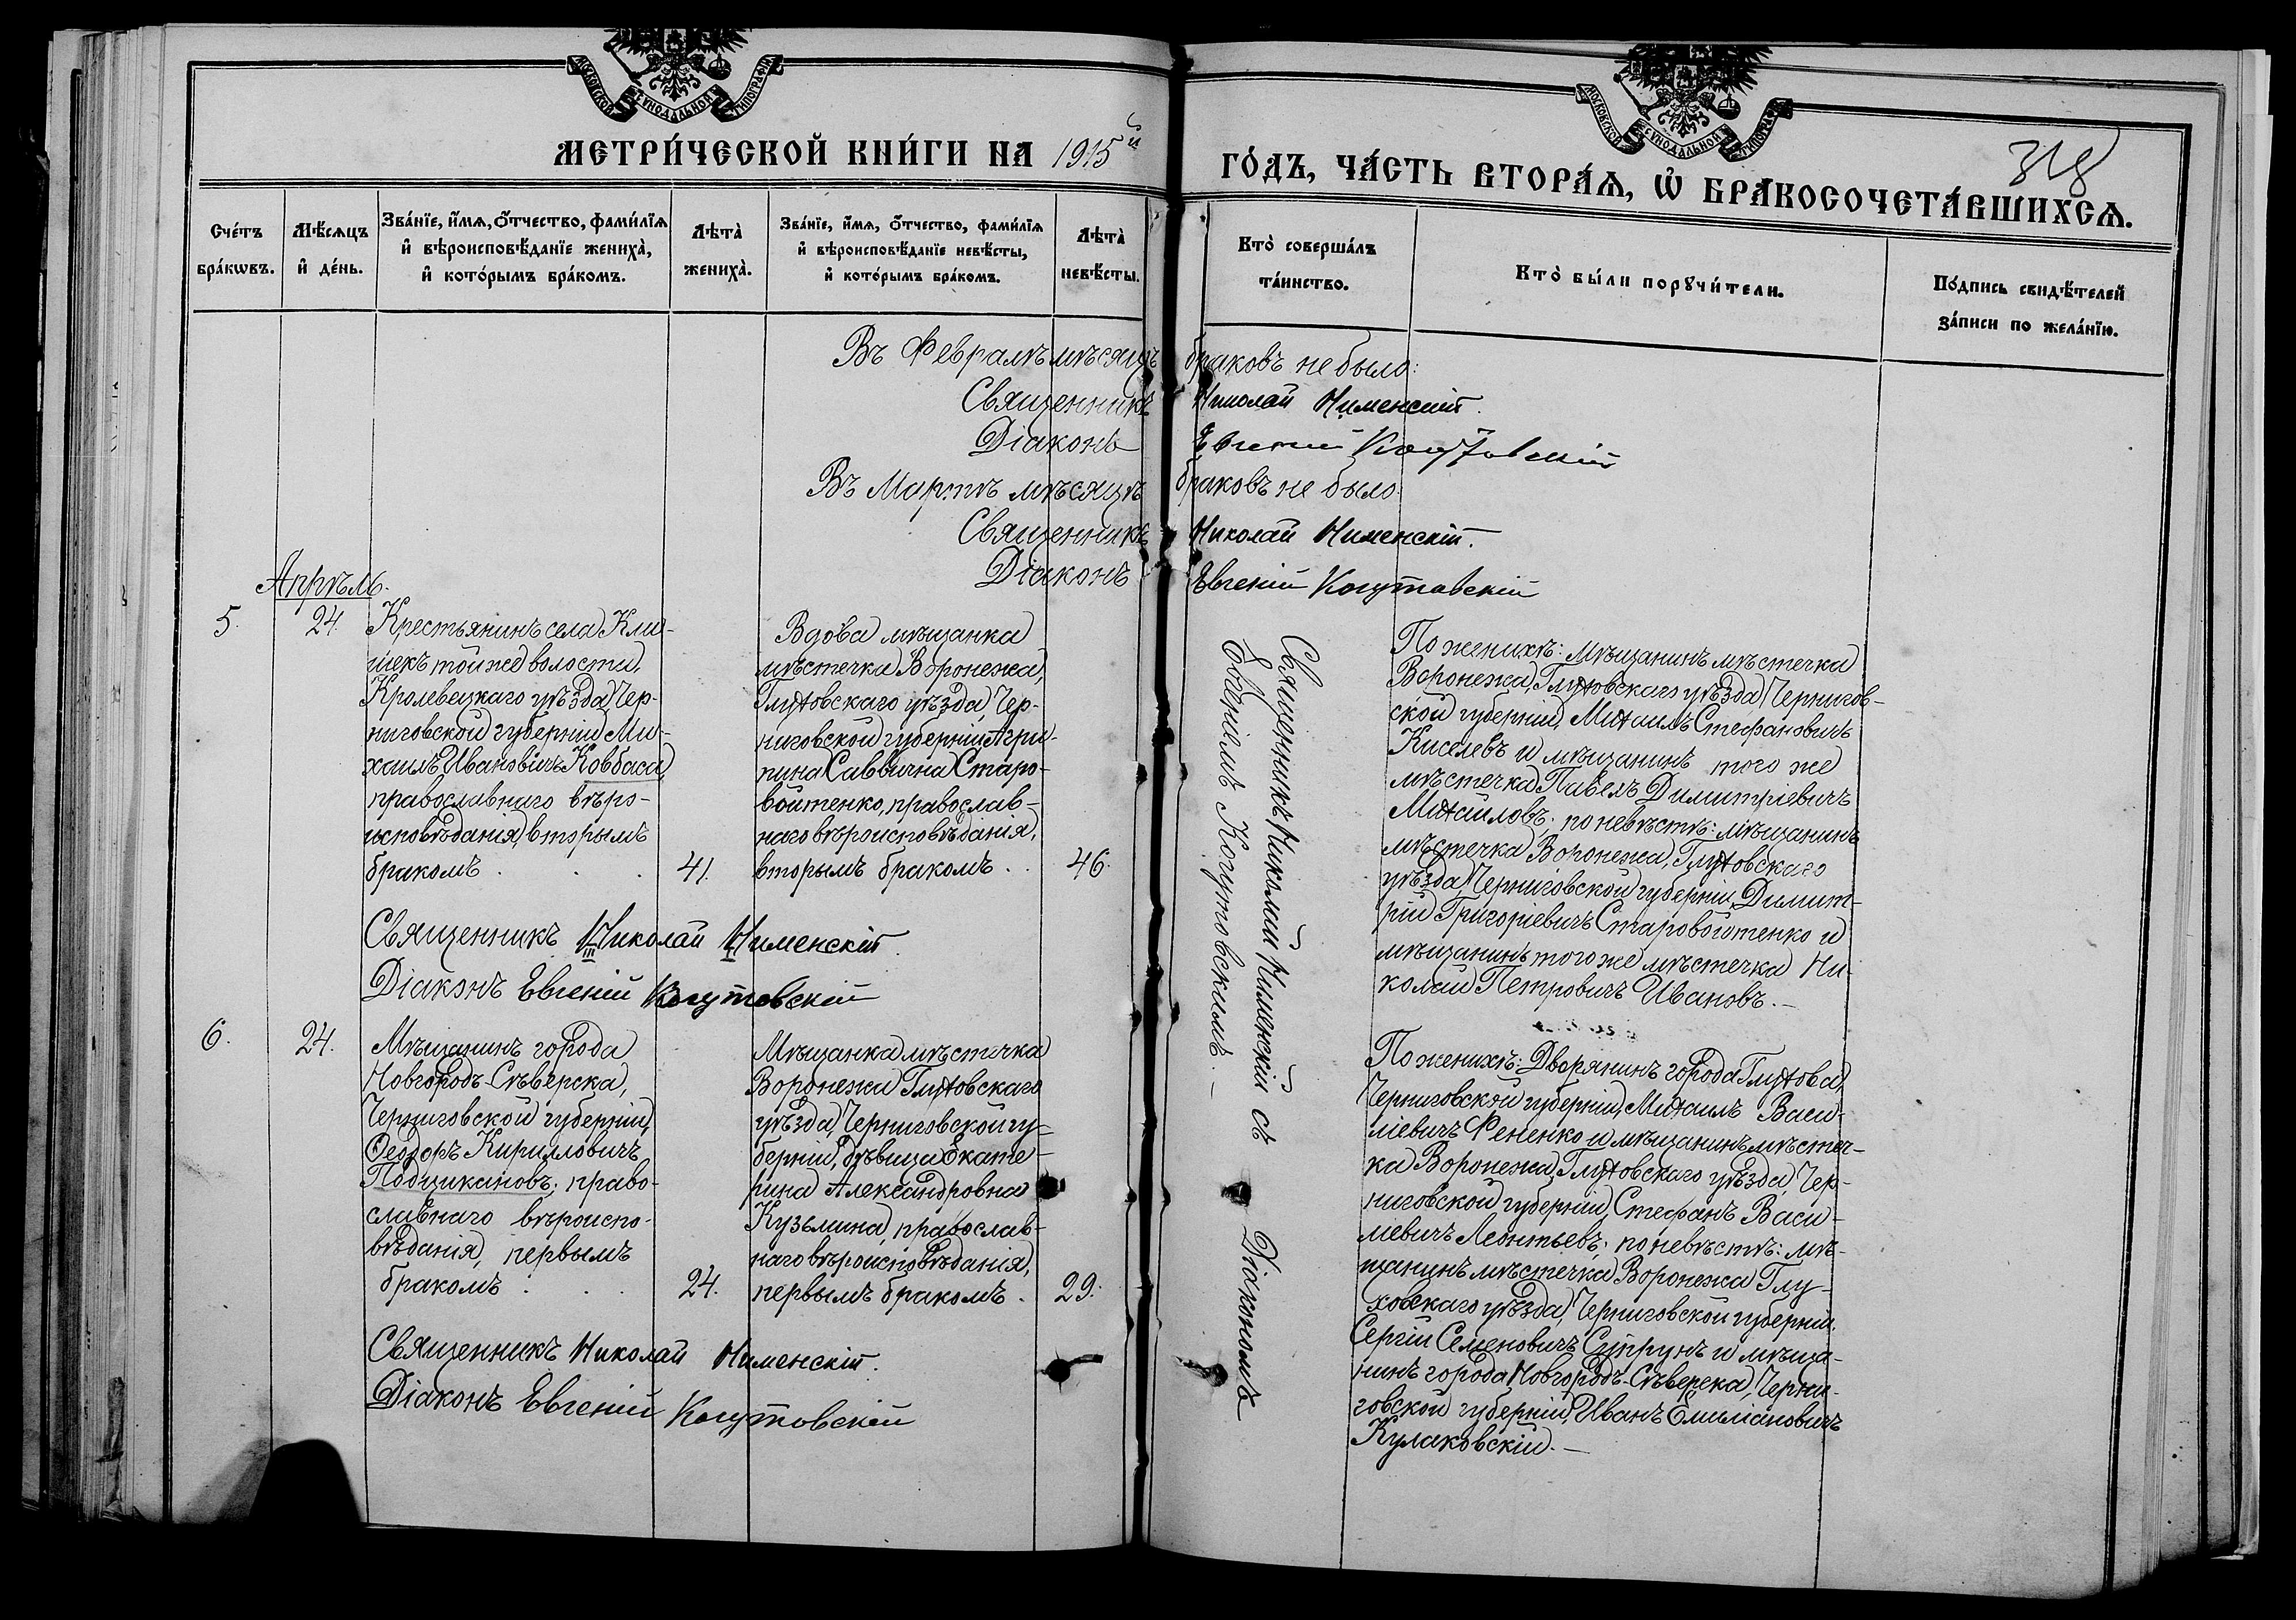 МОСКОВСКОЙ СѴНОДАЛЬНОЙ ТИПОГРАФІИ
МЕТРИ́ЧЕСКОЙ КНИ́ГИ НА 1915й
Сче́тъ бра́кѡвъ.
Мѣ́сѧцъ и де́нь.
Зва́нїе, и́мѧ, ѻ́тчество, фами́лїѧ
и вѣроисповѣ́данїе жениха̀,
и кото́рымъ бра́комъ.
Лѣта̀ жениха̀.
Зва́нїе, и́мѧ, ѻ́тчество, фами́лїѧ
и вѣроисповѣ́данїе невѣ́сты,
и кото́рымъ бра́комъ.
Лѣта̀ невѣ́сты.
МОСКОВСКОЙ СѴНОДАЛЬНОЙ ТИПОГРАФІИ
318
ГО́ДЪ, ЧА́СТЬ ВТОРА́Ѧ, Ѡ҆ БРАКОСОЧЕТА́ВШИХСѦ.
Кто̀ соверша́лъ
та́инство.
Кто̀ бы́ли порꙋчи́тели.
По́дпись свидѣ́телей
за́писи по жела́нїю.
Въ Февралѣ мѣсяцѣ браковъ не было:
Священникъ Николай Нименскій.
Діаконъ Евгеній Когутовскій
Въ Мартѣ мѣсяцѣ браковъ не было.
Священникъ Николай Нименскій.
Діаконъ Евгеній Когутовскій
Апрѣль.
5.
24.
Крестьянинъ села Кли-
шекъ той же волости,
Кролевецкаго уѣзда, Чер-
ниговской губерніи Ми-
хаилъ Ивановичъ Ковбаса,
православнаго вѣро-
исповѣданія, вторымъ
бракомъ . . .
41.
Вдова мѣщанка
мѣстечка Воронежа,
Глуховскаго уѣзда, Чер-
ниговской губерніи Агри-
пина Саввична Старо-
войтенко, православ-
наго вѣроисповѣданія,
вторымъ бракомъ . .
46.
Священникъ Николай Нименскій съ Діакономъ
Евгеніемъ Когутовскимъ. —
По женихѣ: мѣщанинъ мѣстечка
Воронежа, Глуховскаго уѣзда, Чернигов-
ской губерніи, Михаилъ Стефановичъ
Киселевъ и мѣщанинъ того же
мѣстечка Павелъ Димитріевичъ
Михаиловъ; по невѣстѣ: мѣщанинъ
мѣстечка Воронежа, Глуховскаго
уѣзда, Черниговской губерніи, Димит-
рій Григоріевичъ Старовойтенко и
мѣщанинъ того же мѣстечка Ни-
колай Петровичъ Ивановъ. —
Священникъ Николай Нименскій.
Діаконъ Евгеній Когутовскій
6.
24.
Мѣщанинъ города
Новгородъ-Сѣверска,
Черниговской губерніи,
Ѳеодоръ Кирилловичъ
Подцикановъ; право-
славнаго вѣроиспо-
вѣданія, первымъ
бракомъ . . .
24.
Мѣщанка мѣстечка
Воронежа Глуховскаго
уѣзда, Черниговской гу-
берніи, дѣвица Екате-
рина Александровна
Кузьмина, православ-
наго вѣроисповѣданія,
первымъ бракомъ .
29.
По женихѣ: Дворянинъ города Глухова,
Черниговской губерніи, Михаилъ Васи-
ліевичъ Фененко и мѣщанинъ мѣстеч-
ка Воронежа, Глуховскаго уѣзда, Чер-
ниговской губерніи, Стефанъ Васи-
ліевичъ Леонтьевъ; по невѣстѣ: мѣ-
щанинъ мѣстечка Воронежа Глу-
ховскаго уѣзда, Черниговской губерніи.
Сергій Семеновичъ Супрунъ и мѣща-
нинъ города Новгородъ-Сѣверска, Черни-
говской губерніи, Иванъ Емиліановичъ
Кулаковскій. —
Священникъ Николай Нименскій.
Діаконъ Евгеній Когутовскій